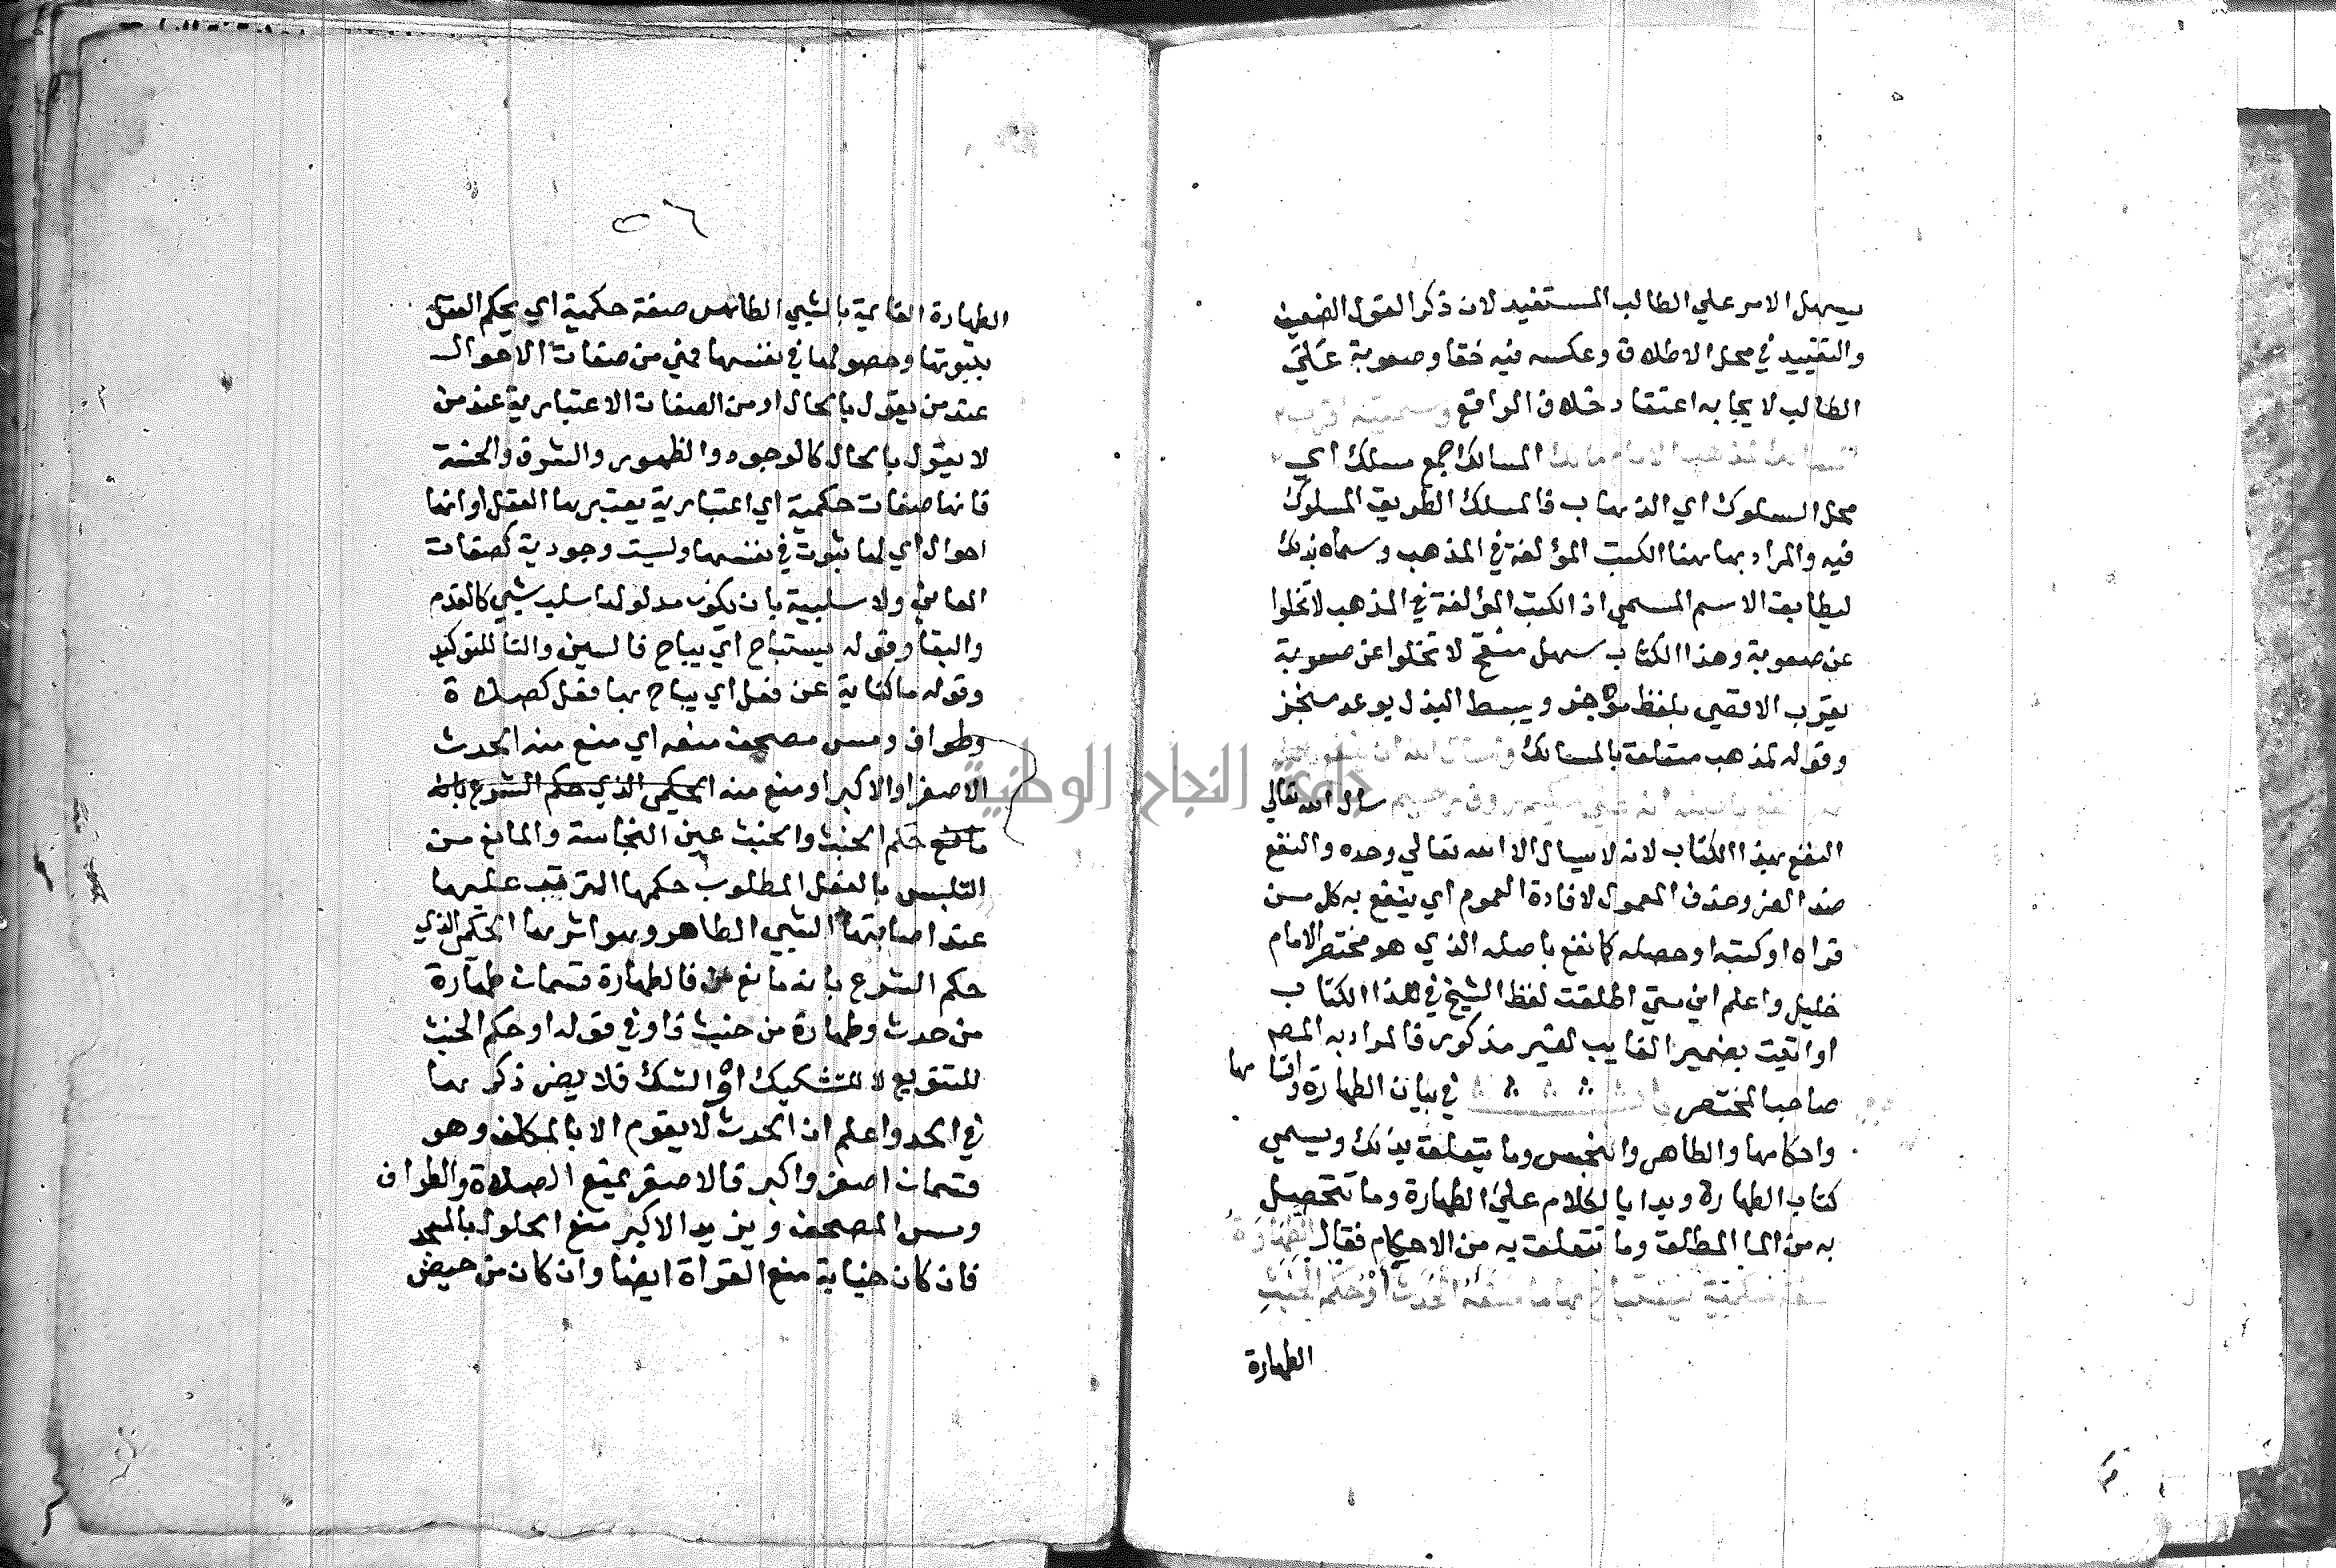 يسهل الامر علي الطالب المستفيد لان ذكر القول الضعيف
والتقييد في محل الاطلاق وعكسه فيه خفا وصعوبة علي
الطالب لايجابه اعتقاد خلاف الواقع
المسالك جمع مسلك اي
محل السلوك اي الذهاب فالمسلك الطريق المسلوك
فيه والمراد بها هنا الكتب المؤلفة في المذهب وسماه بذلك
ليطابق الاسم المسمي اذ الكتب المؤلفة في المذهب لاتخلوا
عن صعوبة وهذا الكتاب سهل منقح لا تخلوا عن صعوبة
يقرب الاقصي بلفظ موجز ويبسط البذل بوعد منجز
وقوله لمذهب متعلق بالمسالك
سال الله تعالي
النفع بهذا الكتاب لانه لا يسال الا الله تعالي وحده والنفع
ضد الضر وحذف المعمول لافادة العموم اي ينفع به كل من
قراه او كتبه او حصله كما نفع باصله الذي هو مختصر الامام
خليل واعلم اني متي اطلقت لفظ الشيخ في هذا الكتاب
او اتيت بضمير الغايب لغير مذكور فالمراد به المص
صاحب المختصر في بيان الطهارة
واحكامها والطاهر والنجس وما يتعلق بذلك ويسمي
كتاب الطهارة وبدا بالكلام علي الطهارة وما تتحصل
به من الما المطلق وما تتعلق به من الاحكام فقال الطهارة
صفة حكمية يستباح بها ما منعه الحدث او حكم الخبث
الطهارة
٥٦
الطهارة القايمة بالشي الطاهر صفة حكمية اي يحكم العقل
بثبوتها وحصولها في نفسها فهي من صفات الاحوال
عند من يقول بالحال او من الصفات الاعتبارية عند من
لا يقول بالحال كالوجود والظهور والشرف والخسة
فانها صفات حكمية اي اعتبارية يعتبرها العقل او انها
احوال اي لها ثبوت في نفسها وليست وجودية كصفات
المعاني ولا سلبية بان يكون مدلولها سلب شي كالقدم
والبقا وقوله يستباح اي يباح فالسين والتا للتوكيد
وقوله ما كناية عن فعل اي يباح بها فعل كصلاة
وطواف ومس مصحف منعه اي منع منه الحدث
الاصغر او الاكبر او منع منه الحكمي الذي حكم الشرع بانه
مانع حكم الخبث والخبث عين النجاسة والمانع من
التلبس بالفعل المطلوب حكمها المترتب عليها
عند اصابتها الشي الطاهر وهو اثرها الحكمي الذي
حكم الشرع بانه مانع فالطهارة قسمان طهارة
من حدث وطهارة من خبث فاو في قوله او حكم الخبث
للتنويع لا للتشكيك او الشك فلا يضر ذكرها
في الحد واعلم ان الحدث لا يقوم الا بالمكلف وهو
قسمان اصغر واكبر فالاصغر يمنع الصلاة والطواف
ومس المصحف ويزيد الاكبر منع الحلول بالمسجد
فان كان جنابة منع القراة ايضا وان كان من حيض
جامعة النجاح الوطنية